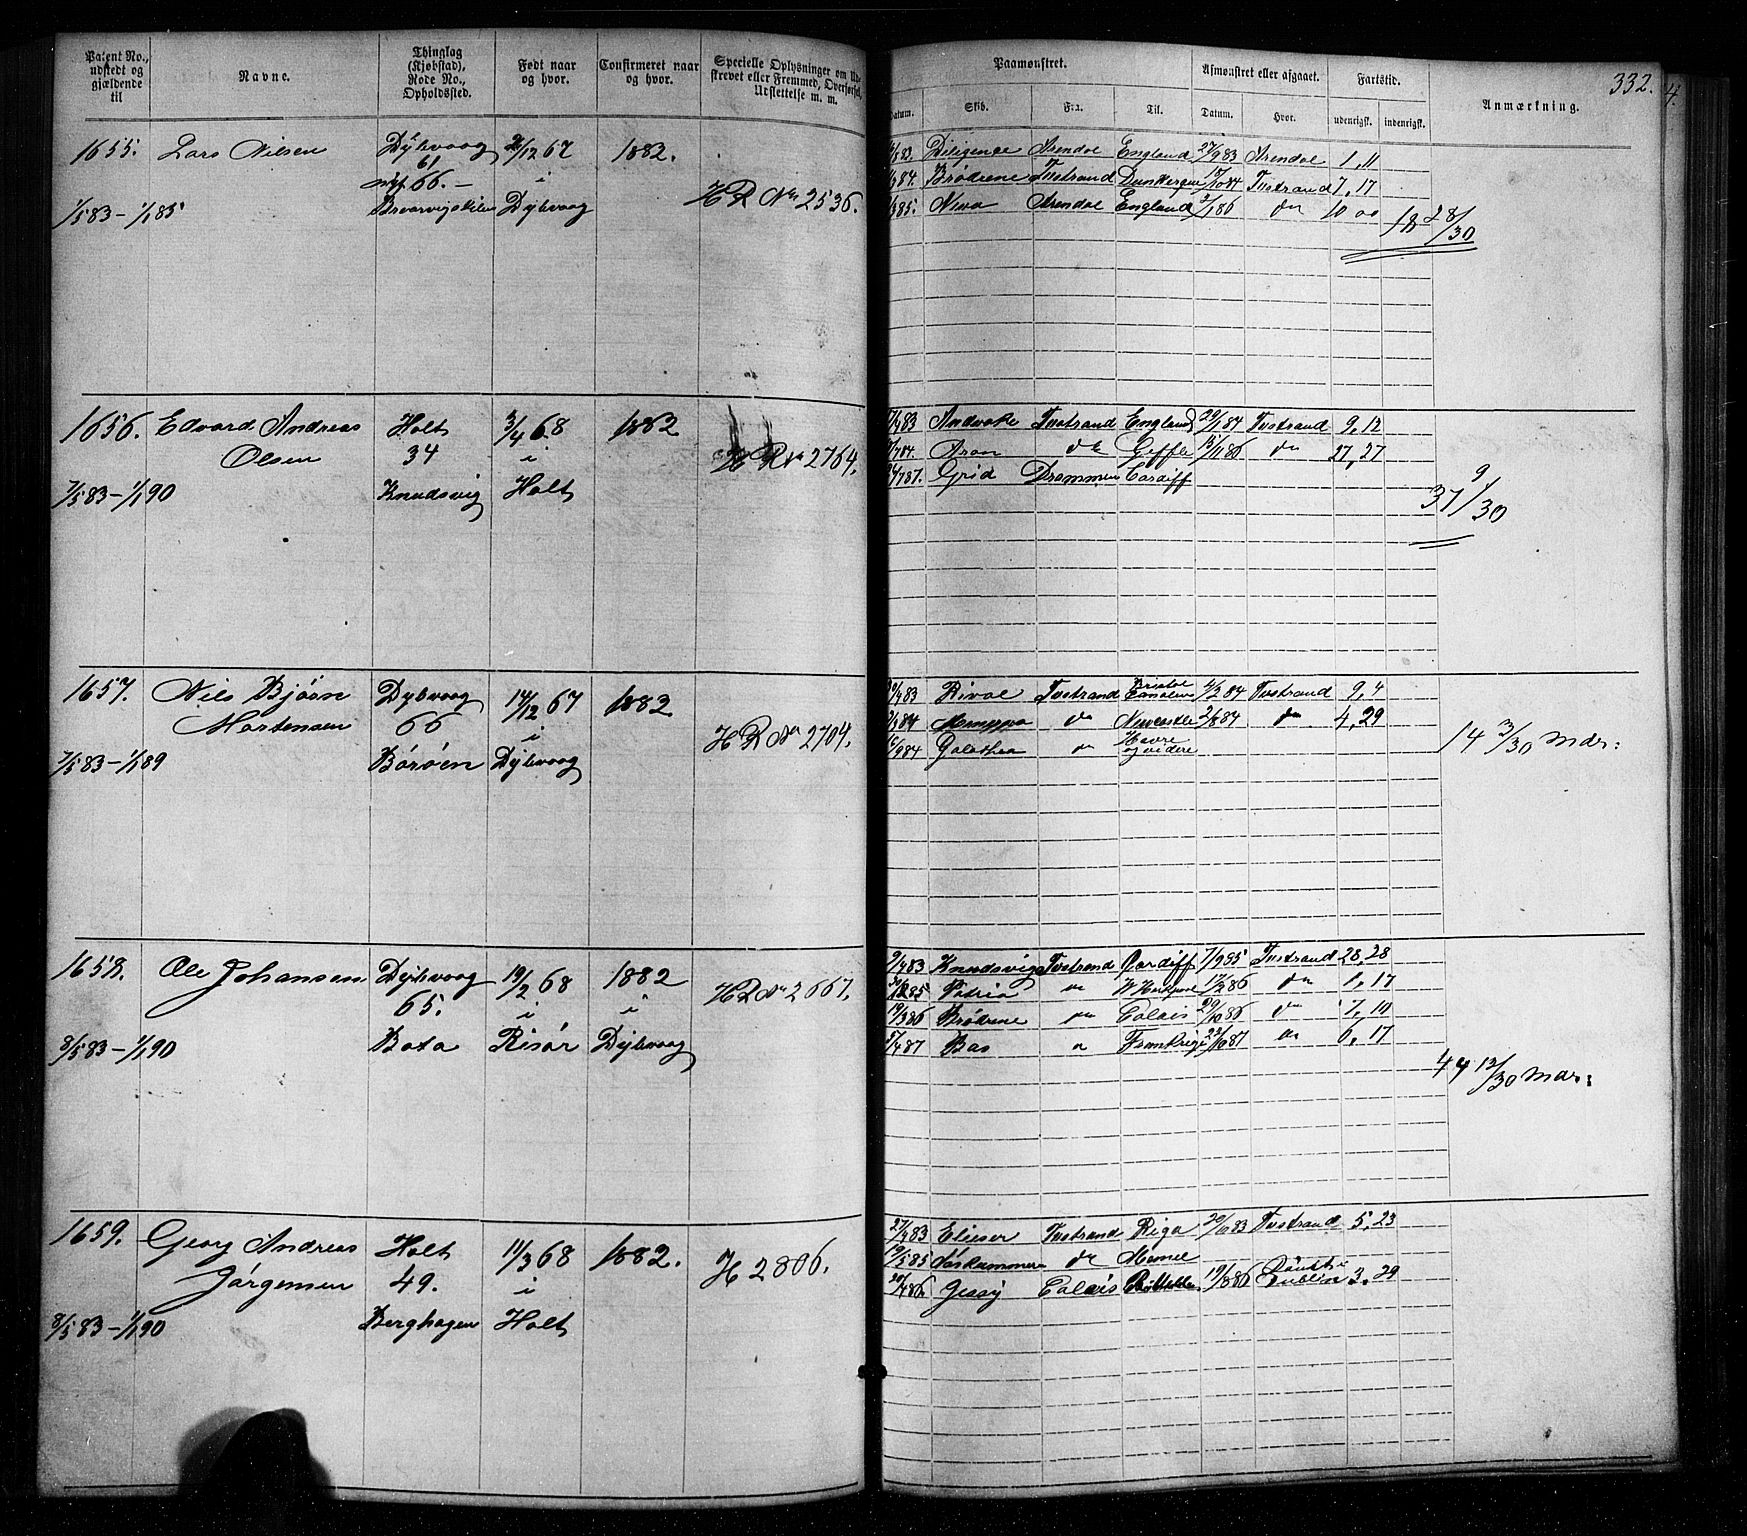 332.
4.
Patent No., udstedt og gjældende til
Navne.
Thinglag (Kjøbstad), Rode No., Opholdssted.
Født naar og hvor.
Confirmeret naar og hvor.
Specielle Oplysninger om Ud- skrevet eller Fremmed, Overførsel, Udslettelse m. m.
Paamønstret.
Datum. Skib. Fra. Til.
Afmønstret eller afgaaet.
Datum. Hvor.
Fartstid.
udenrigsk. indenrigsk.
Anmærkning.
1655. Lars Nilsen Dybvaag 2/12 67 1882.
61
66. — i
1/5 83 – 1/1 85 Dybvaag
HR No 2536.
Diligence Arendal England 27/9 83 Arendal 1, 11
84. Brødrene Tvstrand Dunkerque Tvstrand 7, 17
85. Arendal England 2/1 86 do 10 00
18 28/30
1656. Edvard Andreas Holt 3/4 68 1882
Olsen 34 i
7/5 83 – 1/1 90 Knudsvig Holt
HR No 2764.
83 Andvake Tvstrand England 29/1 84 Tvstrand 9, 12
Aron do Gefle do 27, 27
87. Grid Drammen Cardiff
37 9/30
1657. Nils Bjørn Dybvaag 14/12 67 1882
Mortensen 66 i
7/5 83 – 1/1 89 Borøen Dybvaag
HR No 2704.
83 Rival Tvstrand 84 Tvstrand 9, 4
84 do Newcastle 2/8 84 do 4, 29
84 Galathea do Havre og videre
14 3/30 Mdr:
1658. Ole Johansen Dybvaag 19/2 68 1882
65. i i
8/5 83 – 1/1 90 Bota Risør Dybvaag
HR No 2667.
83 Knudsvig Tvstrand Cardiff 7/9 85 Tvstrand 28, 28
85 Patria do 17/2 86 do 1, 17
19/3 86 Brødrene do Calais 29/10 86 do 7, 10
87 Bas do Frankrige 22/10 87 do 6, 17
44 12/30 Mdr:
1659. Georg Andreas Holt 11/3 68 1882.
Jörgensen 49. i
8/5 83 – 1/1 90 Berghagen Holt
H 2806.
83 Elieser Tvstrand Riga 20/10 83 Tvstrand 5, 23
85 do Memel
86 Jessy Calais 19/8 86 Dublin 3, 29